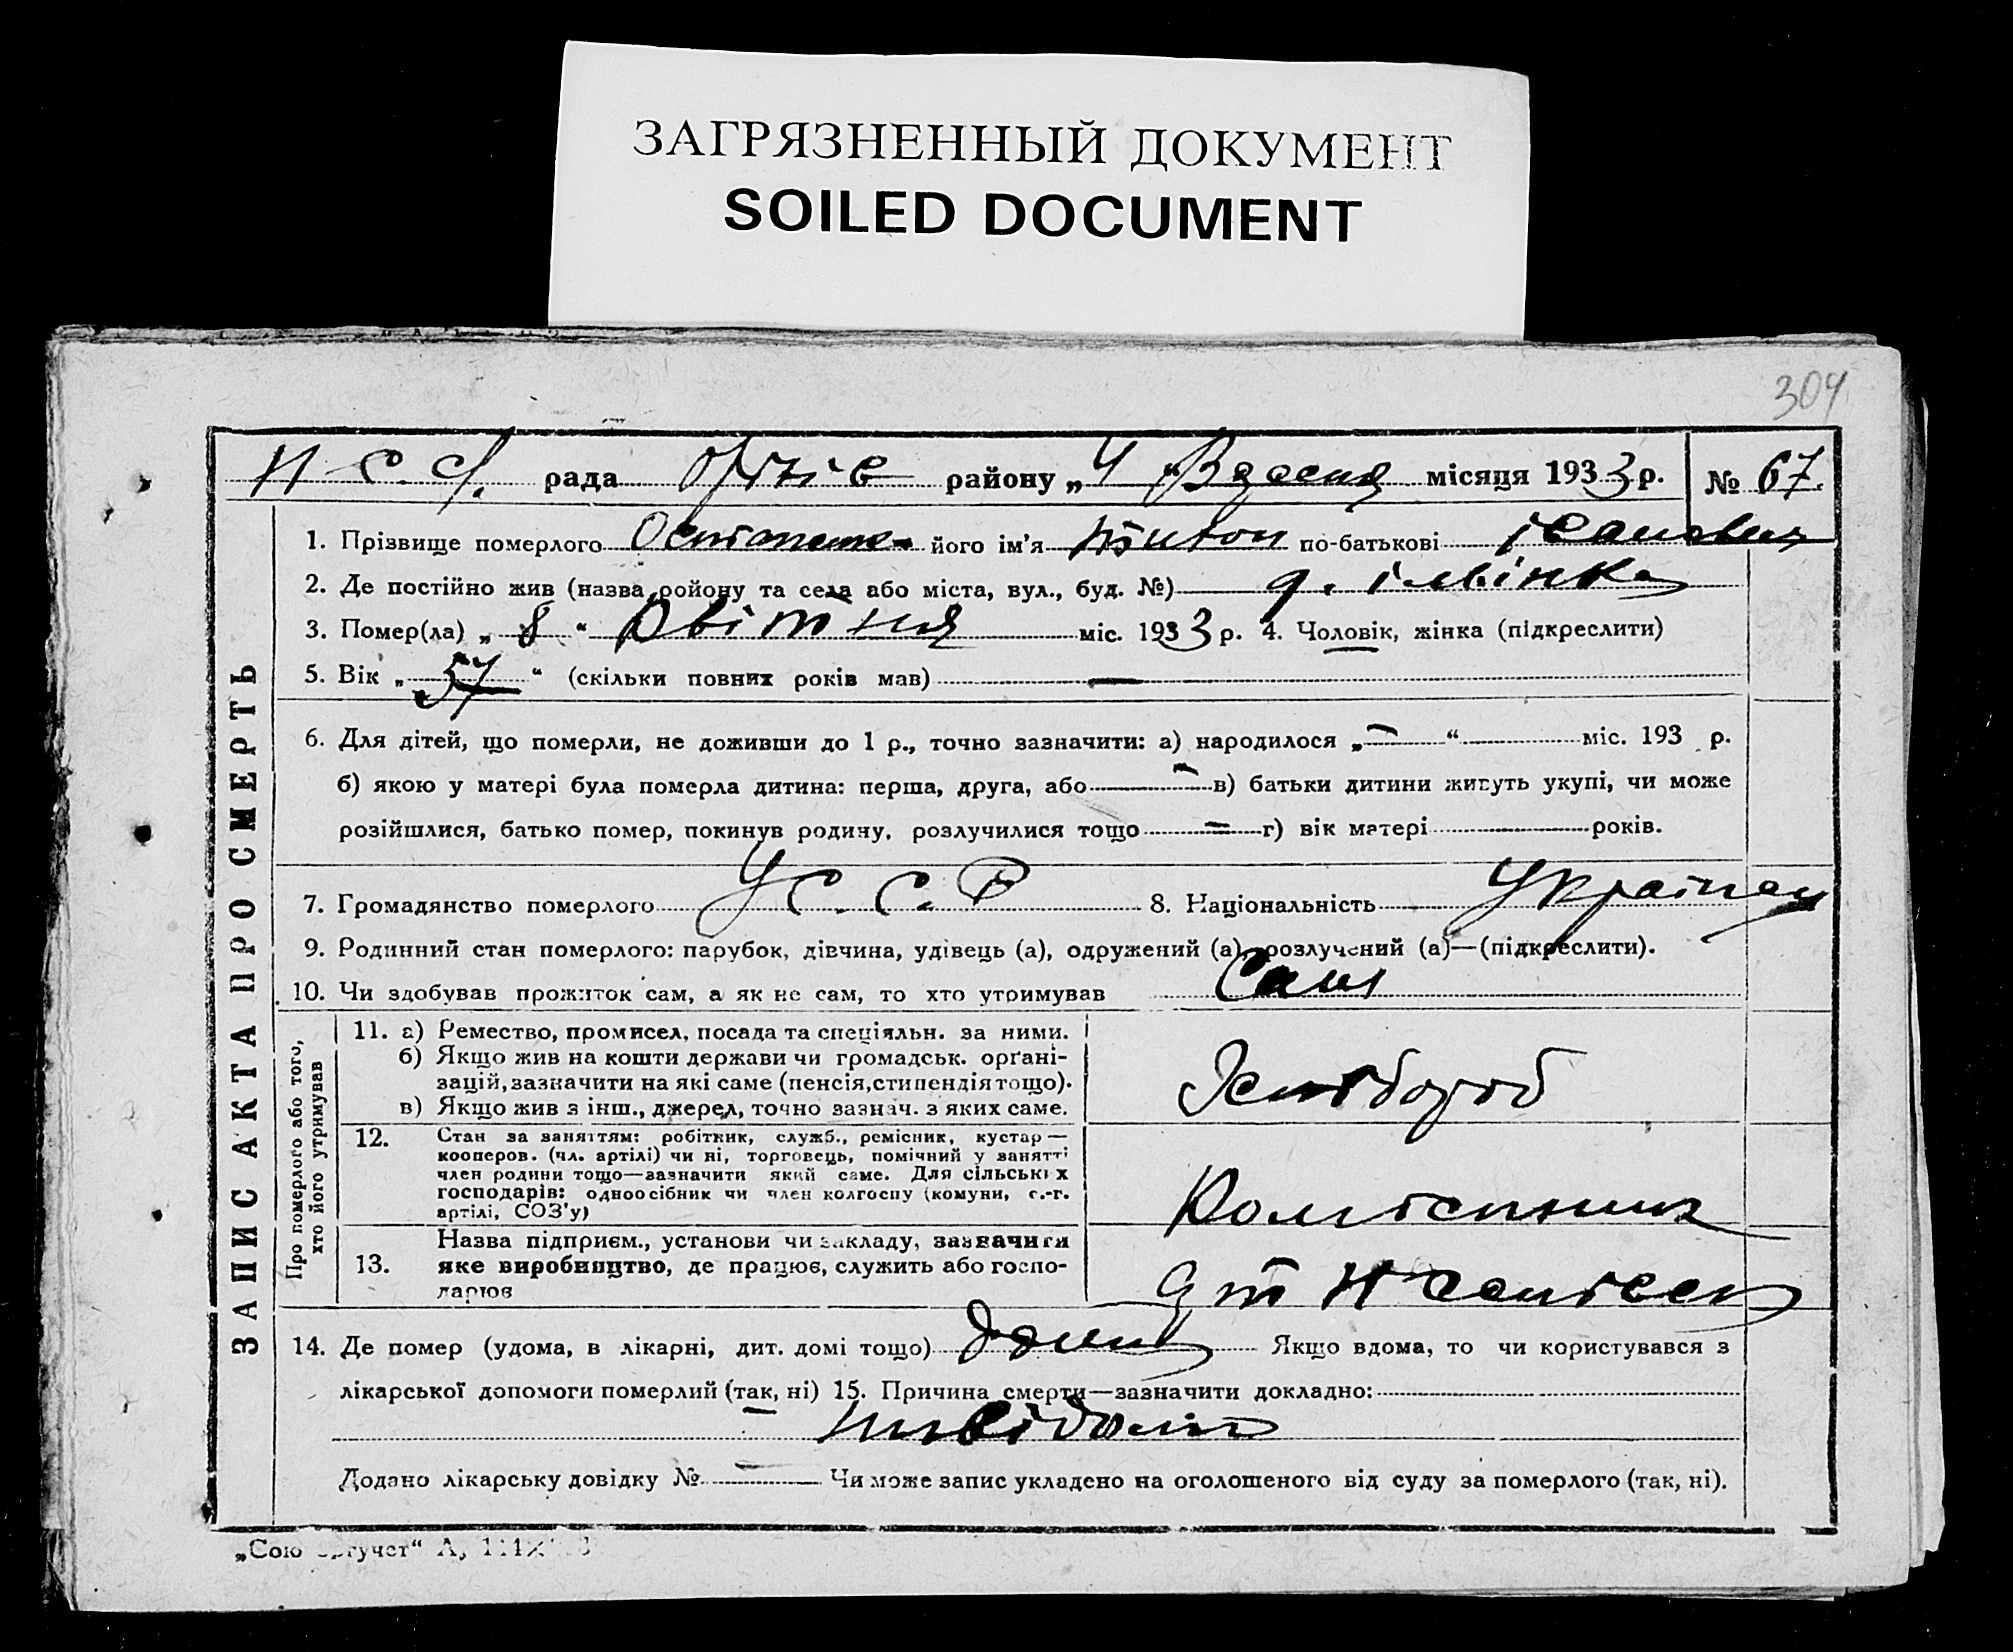 ЗАГРЯЗНЕННЫЙ ДОКУМЕНТ
SOILED DOCUMENT
304
рада району „4“ місяця 1933 р. № 67.
1. Прізвище померлого його ім'я по-батькові іванович
2. Де постійно жив (назва ройону та села або міста, вул., буд. №)
3. Помер(ла) „8“ Квітня міс. 1933 р. 4. Чоловік, жінка (підкреслити)
5. Вік „57“ (скільки повних років мав) —
6. Для дітей, що померли, не доживши до 1 р., точно зазначити: а) народилося „—“ міс. 193 р.
б) якою у матері була померла дитина: перша, друга, або — в) батьки дитини живуть укупі, чи може
розійшлися, батько помер, покинув родину, розлучилися тощо — г) вік матері років.
7. Громадянство померлого У С. С. Р 8. Національність Українец
9. Родинний стан померлого: парубок, дівчина, удівець (а), одружений (а), розлучений (а)—(підкреслити).
10. Чи здобував прожиток сам, а як не сам, то хто утримував Сам
ЗАПИС АКТА ПРО СМЕРТЬ
Про померлого або того,
хто його утримував
11. а) Ремество, промисел, посада та спеціяльн. за ними.
б) Якщо жив на кошти держави чи громадськ. орґані-
зацій, зазначити на які саме (пенсія, стипендія тощо).
в) Якщо жив з інш., джерел, точно зазнач. з яких саме.
Хлібороб
12. Стан за заняттям: робітник, служб., ремісник, кустар—
кооперов. (чл. артілі) чи ні, торговець, помічний у занятті
член родини тощо—зазначити який саме. Для сільських
господарів: одноосібник чи член колгоспу (комуни, с.-г.
артілі, СОЗ'у)
Колгоспник
13. Назва підприєм., установи чи закладу, зазначити
яке виробництво, де працює, служить або госпо-
дарює
14. Де помер (удома, в лікарні, дит. домі тощо) Якщо вдома, то чи користувався з
лікарської допомоги померлий (так, ні) 15. Причина смерти—зазначити докладно:
Додано лікарську довідку № — Чи може запис укладено на оголошеного від суду за померлого (так, ні).